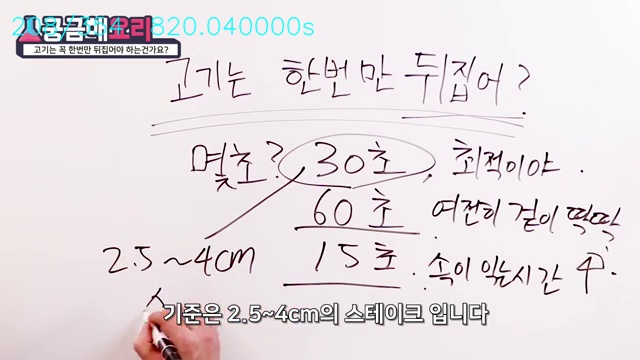 820.040000s
궁금해요리
고기는 꼭 한번만 뒤집어야 하는건가요?
고기는 한번만 뒤집어?
몇초? 30초, 최적이야.
60초 여전히 겉이 딱딱
2.5~4cm 15초. 속이 익는시간 수.
기준은 2.5~4cm의 스테이크 입니다